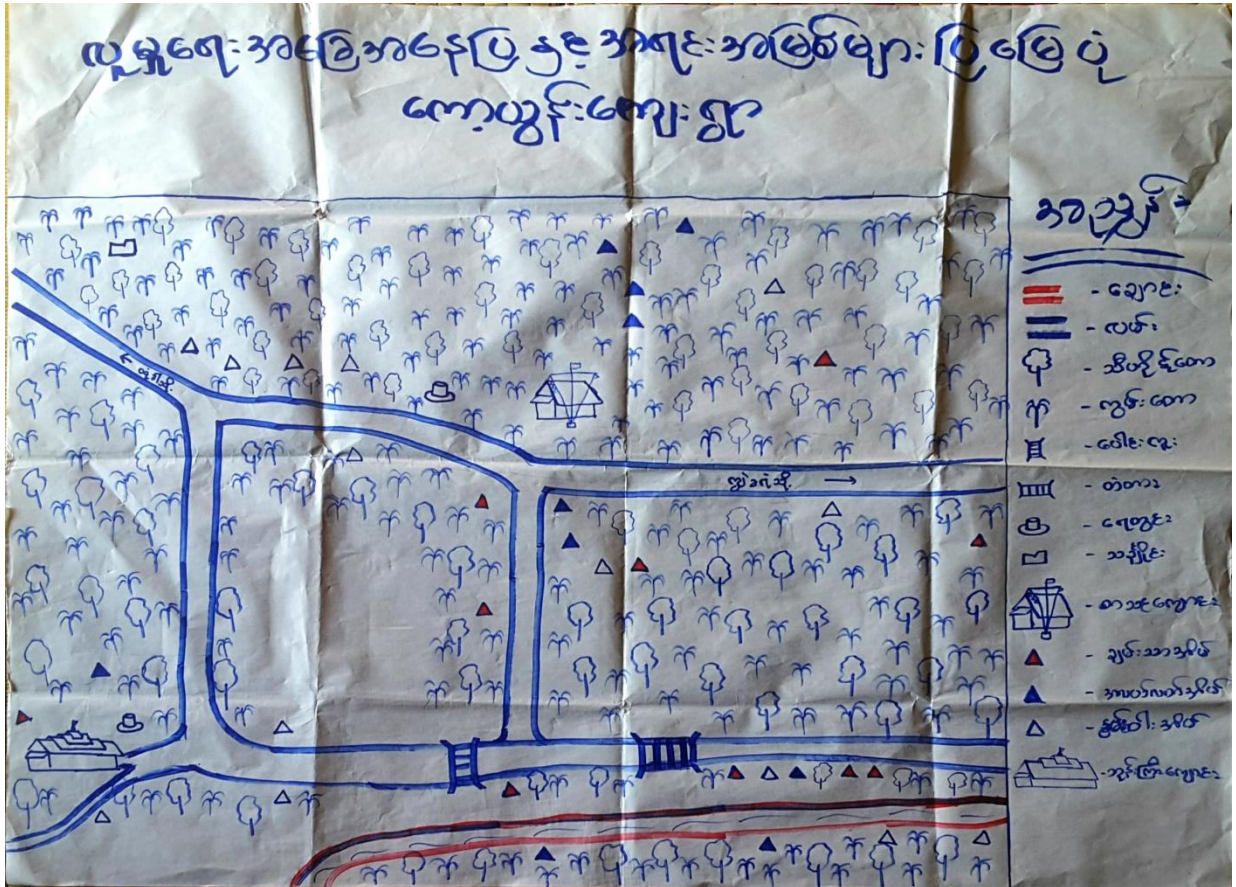 လူမှုရေးအခြေအနေပြနှင့်အရင်းအမြစ်များပြမြေပုံ
ကော့ယွန်းကျေးရွာ
အညွှန်း
- ချောင်း
- လမ်း
- သီဟိုဠ်တော
- ကွမ်းတော
- ပေါင်းကူး
- တံတား
- ရေတွင်း
- သင်္ချိုင်း
- စာသင်ကျောင်း
- ချမ်းသာအိမ်
- အလတ်လတ်အိမ်
- နွမ်းပါးအိမ်
- ဘုန်းကြီးကျောင်း